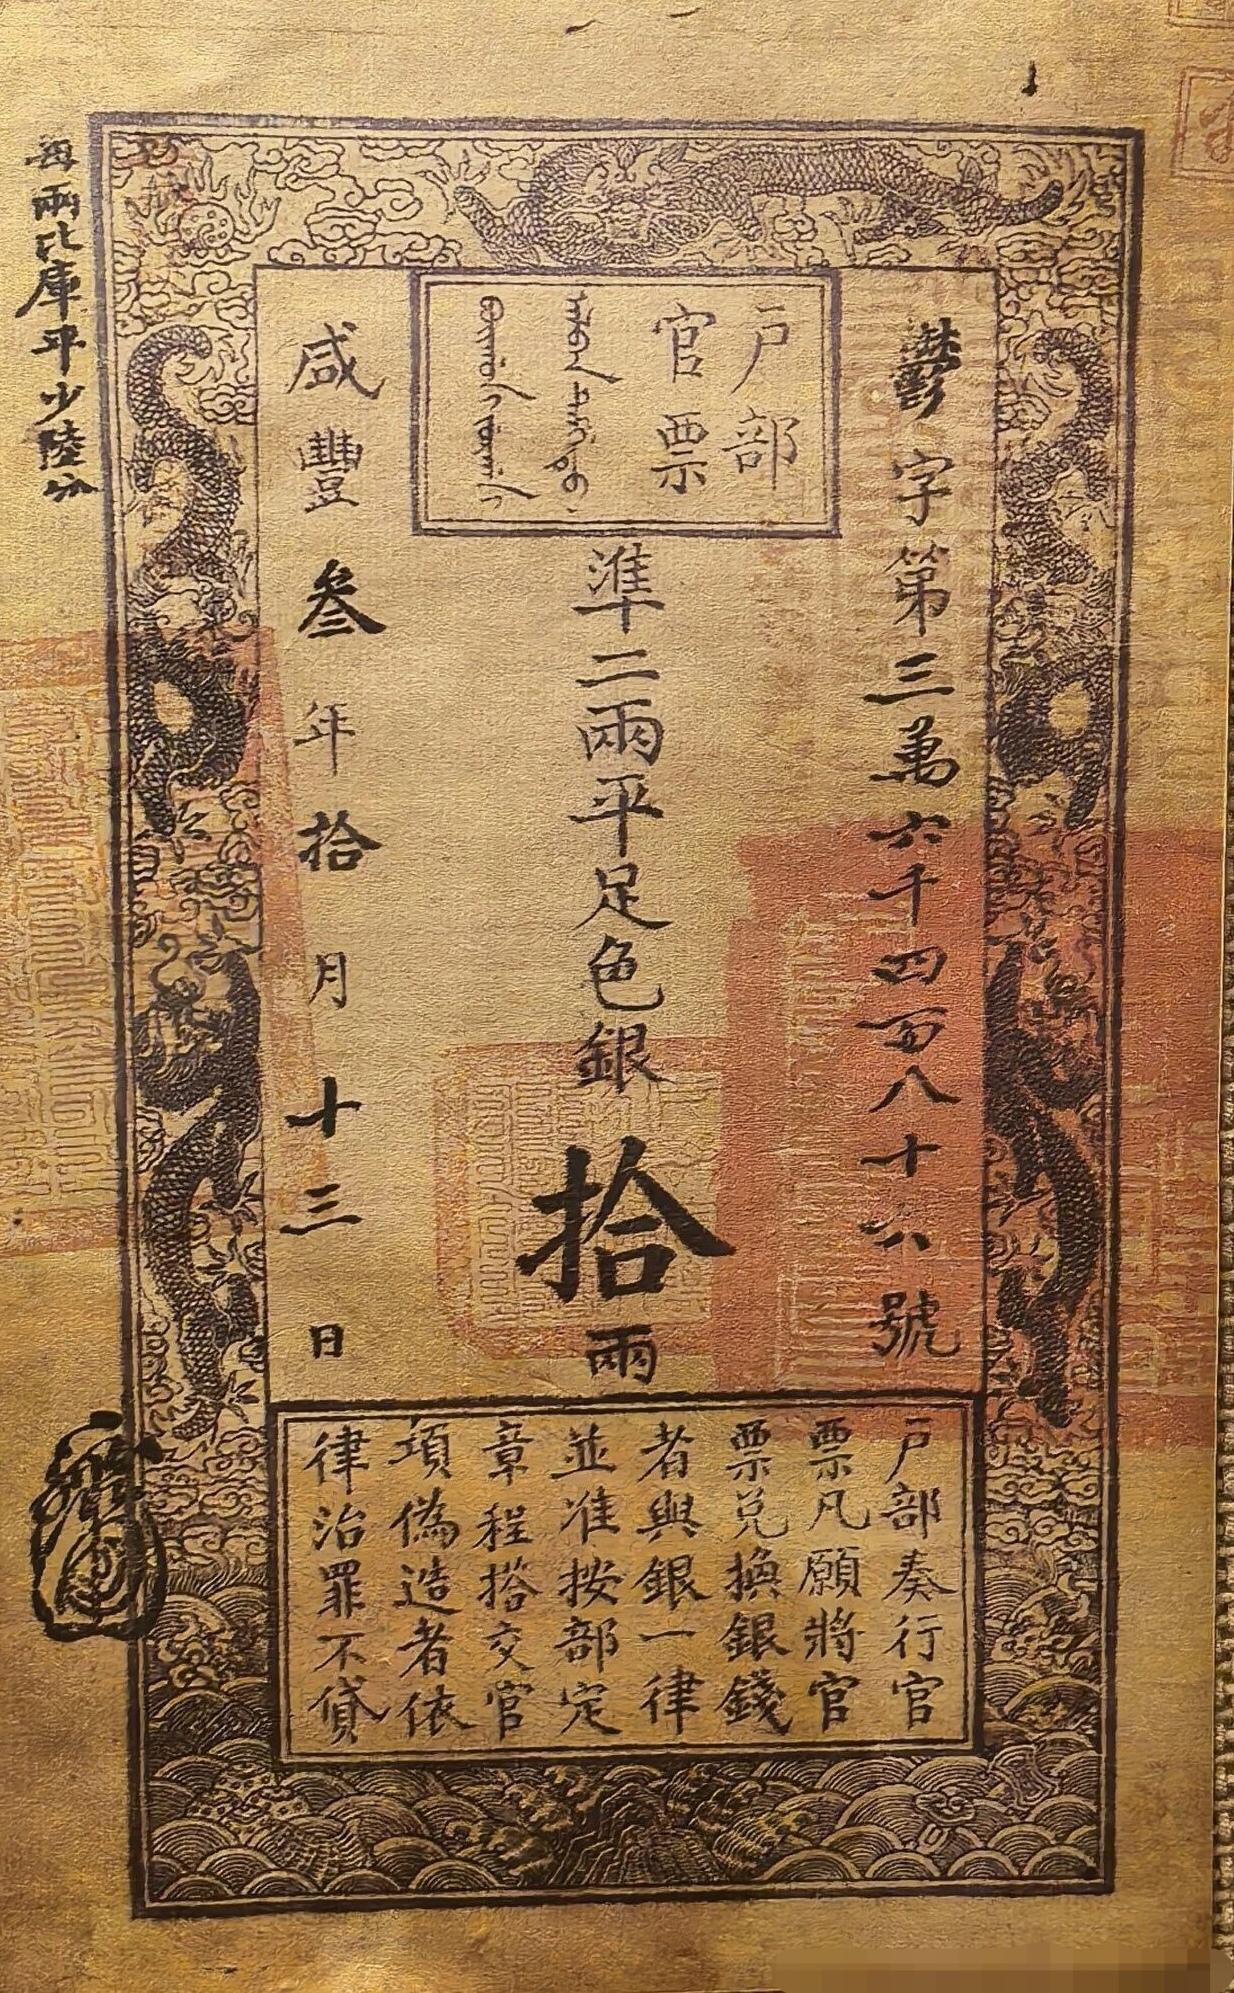 戶部
官票
鬱字第三萬六千四百八十六號
準二兩平足色銀拾兩
咸豐叄年拾月十三日
每兩比庫平少陸分
戶部奏行官
票凡願將官
票兌換銀錢
者與銀一律
並准按部定
章程搭交官
項偽造者依
律治罪不貸